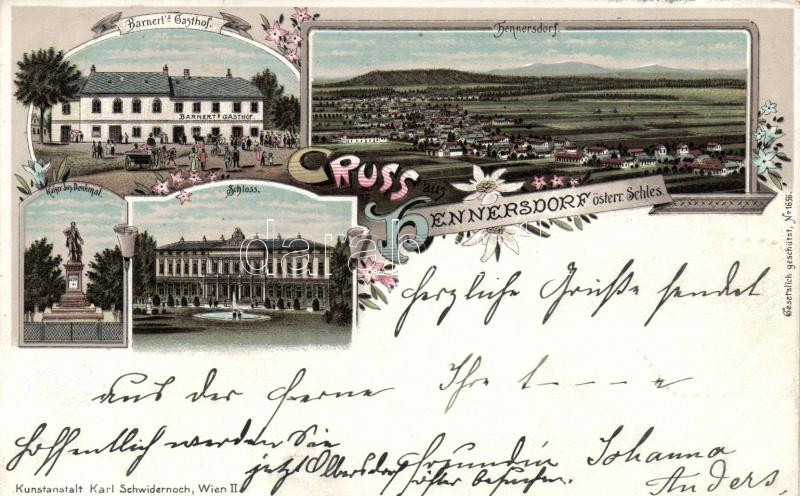 Barnert's Gasthof.
Hennersdorf.
BARNERT'S GASTHOF.
GRUSS aus
HENNERSDORF österr. Schles.
Kaiser Jos. Denkmal.
Schloss.
darabanth
Gesetzlich geschützt, No 1656.
Herzliche Grüße sendet
aus der Ferne Ihre t - - - e
Hoffentlich werden Sie Freundin Johanna
jetzt Olbersdorf öfter besuchen. Anders.
Kunstanstalt Karl Schwidernoch, Wien II